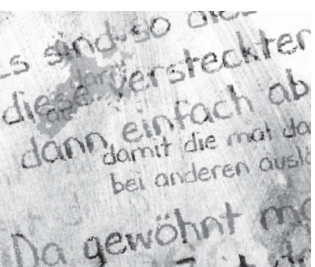 es sind so
diese versteckten
dann einfach ab
damit die mal da
bei anderen auslö
Da gewöhnt